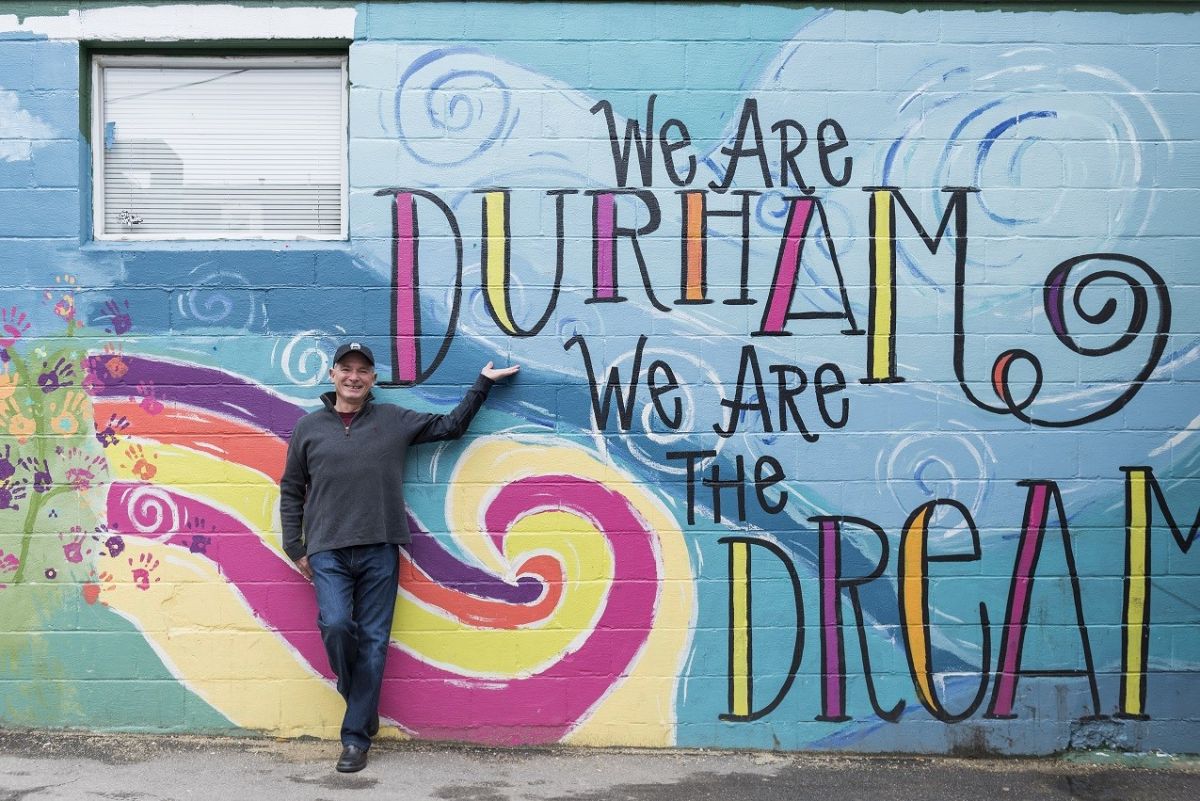 We Are
DURHAM
We Are
THe
DReAM